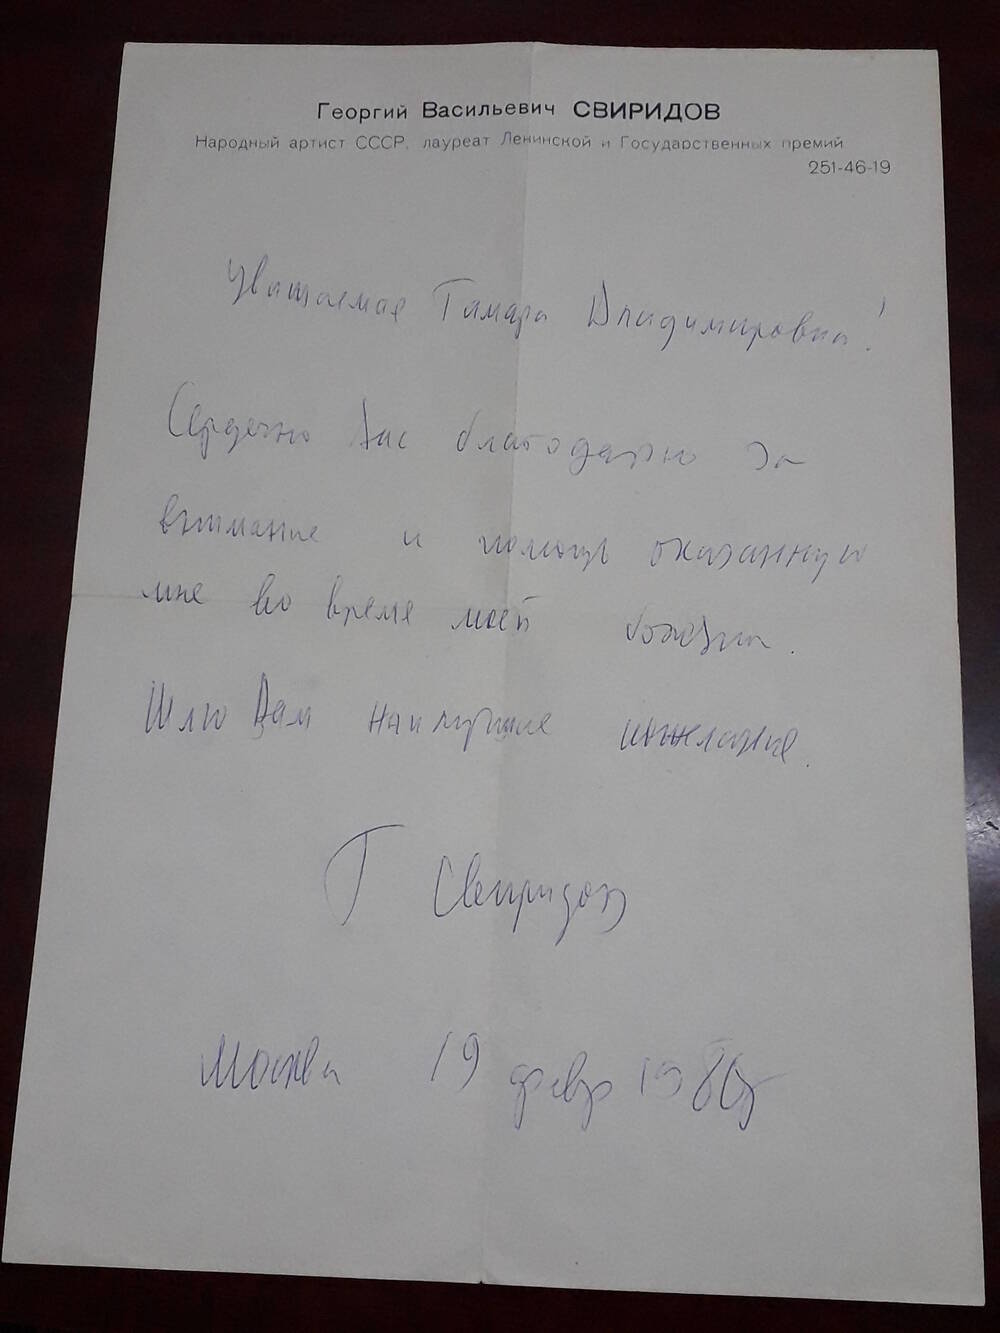 Георгий Васильевич СВИРИДОВ
Народный артист СССР, лауреат Ленинской и Государственных премий
251-46-19
Уважаемая Тамара Владимировна!
Сердечно Вас благодарю за
внимание и помощь оказанную
мне во время моей болезни.
Шлю Вам наилучшие пожелания.
Г Свиридов
Москва 19 февр 1980г